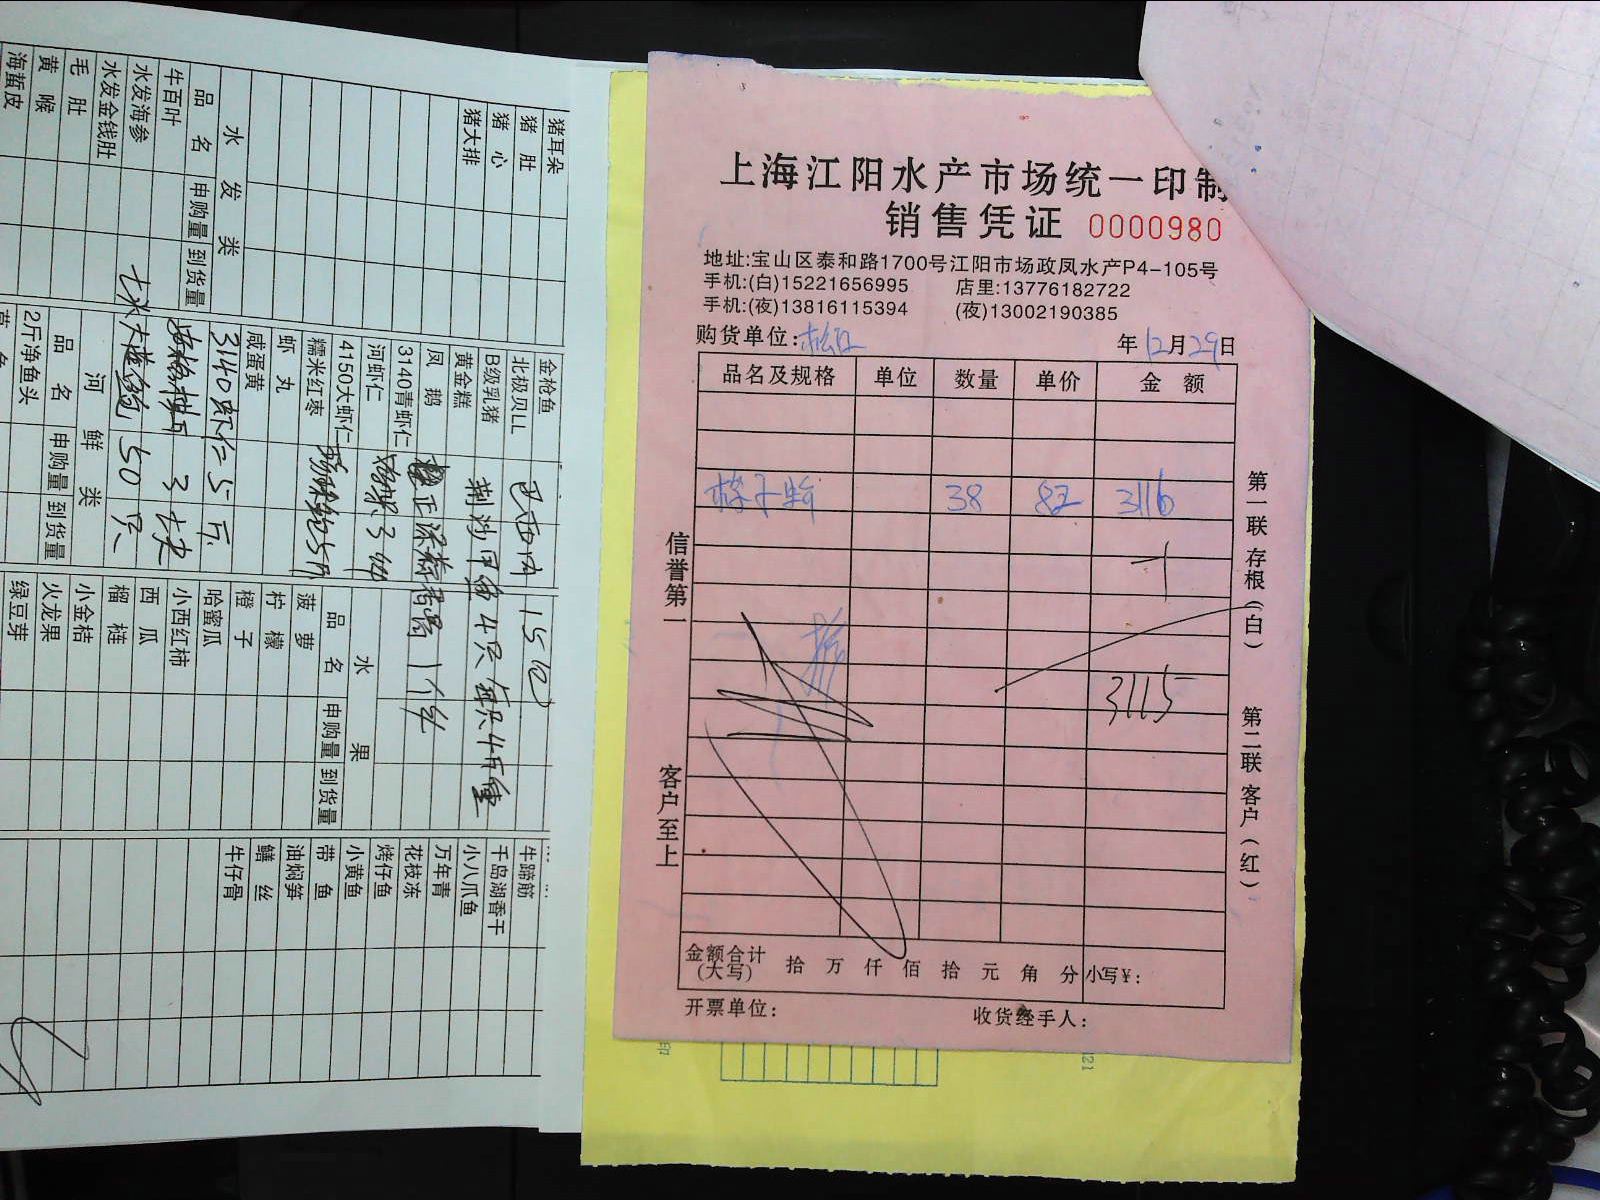 上海江阳水产市场统一印制
销售凭证 0000980
地址:宝山区泰和路1700号江阳市场政凤水产P4-105号
手机:(白)15221656995 店里:13776182722
手机:(夜)13816115394 (夜)13002190385
购货单位:
年12月29日
品名及规格 单位 数量 单价 金 额
38 82 3116
3115
金额合计(大写) 拾 万 仟 佰 拾 元 角 分 小写¥:
开票单位: 收货经手人:
信誉第一 客户至上
第一联 存根(白) 第二联 客户(红)
猪耳朵
猪 肚
猪 心
猪大排
水 发 类
品 名 申购量 到货量
牛百叶
水发海参
水发金钱肚
毛 肚
黄 喉
海蜇皮
金枪鱼
北极贝LL
B级乳猪
黄金糕
凤 鹅
3140青虾仁
河虾仁
4150大虾仁
糯米红枣
虾 丸
咸蛋黄
3140虾仁5斤
3块
50只
15包
河 鲜 类
品 名 申购量 到货量
2斤净鱼头
水 果
品 名 申购量 到货量
菠 萝
柠 檬
橙 子
哈蜜瓜
小西红柿
西 瓜
榴 梿
小金桔
火龙果
绿豆芽
牛蹄筋
千岛湖香干
小八爪鱼
万年青
花枝冻
烤仔鱼
小黄鱼
带 鱼
油焖笋
鳝 丝
牛仔骨